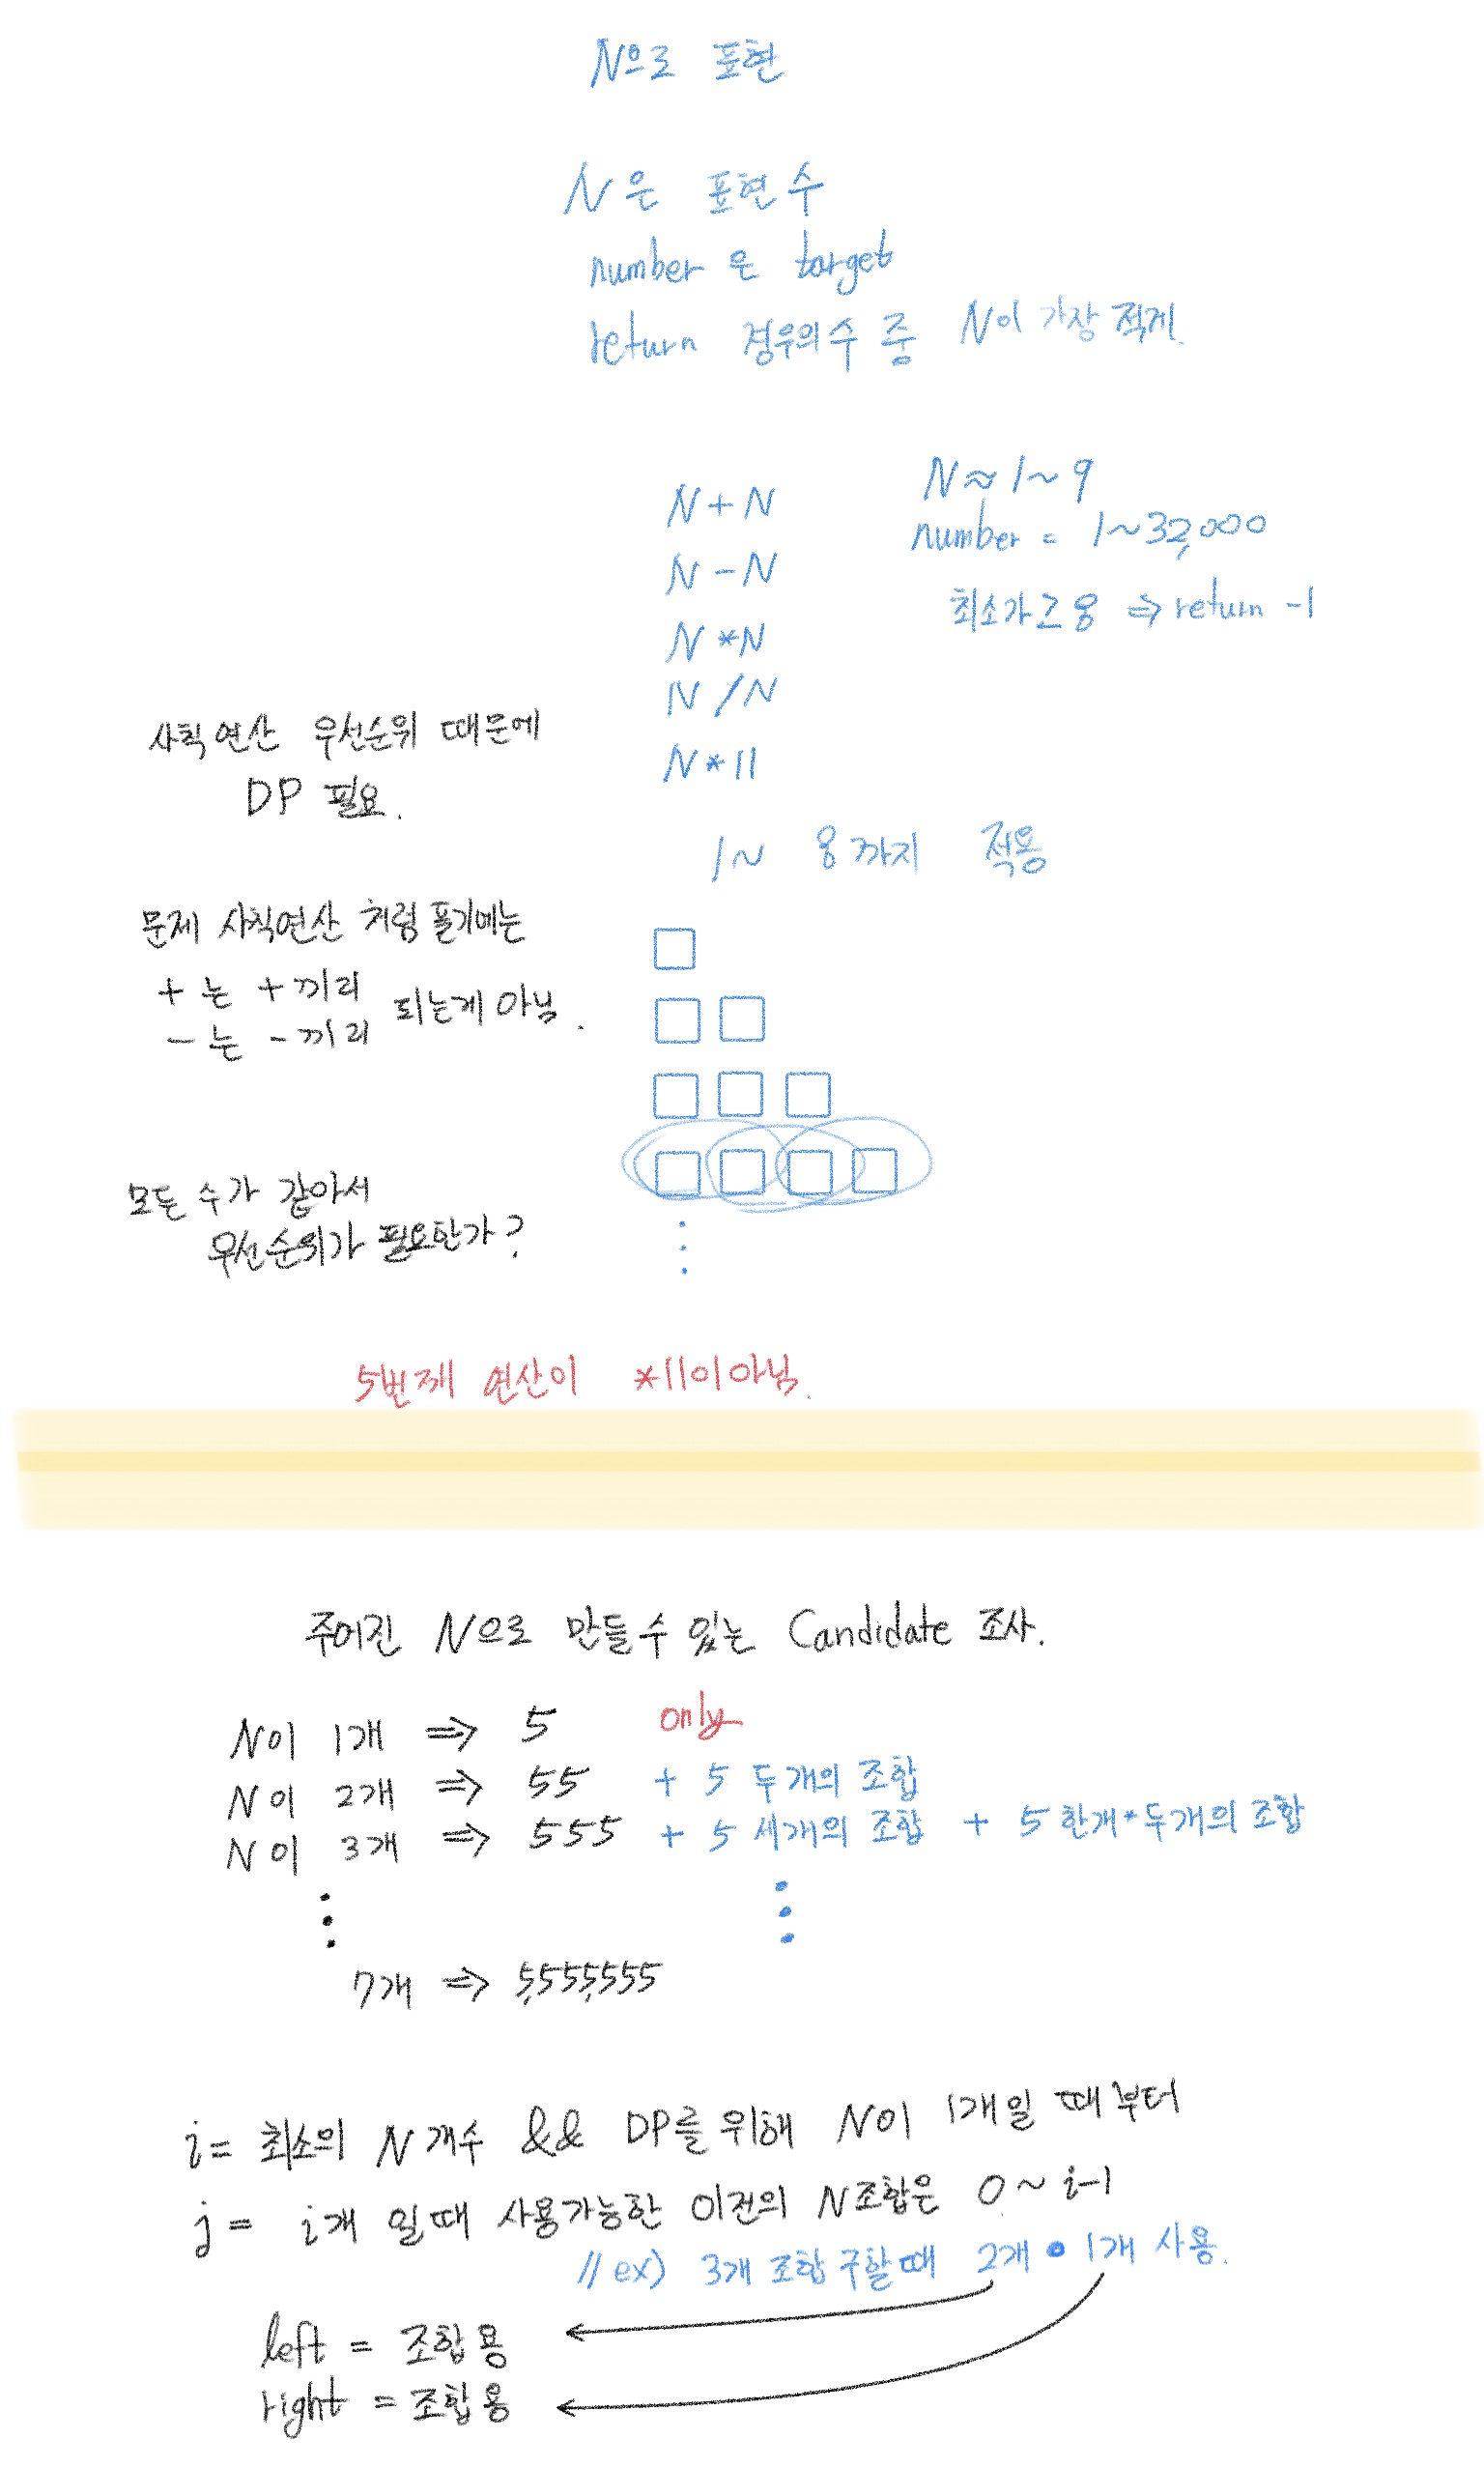 N으로 표현
N은 표현 수
number 은 target
return 경우의 수 중 N이 가장 적게.
N + N
N - N
N * N
N / N
N * 11
N ≈ 1 ~ 9
number = 1 ~ 32,000
최소가 > 8 => return -1
1 ~ 8까지 적용
사칙연산 우선순위 때문에
DP 필요.
문제 사칙연산 처럼 풀기에는
+ 는 + 끼리
- 는 - 끼리 되는게 아님.
모든 수가 같아서
우선순위가 필요한가?
5번째 연산이 *11이 아님.
주어진 N으로 만들 수 있는 Candidate 조사.
N이 1개 => 5 only
N이 2개 => 55 + 5 두개의 조합
N이 3개 => 555 + 5 세개의 조합 + 5 한개*두개의 조합
7개 => 5,555,555
i = 최소의 N 개수 && DP를 위해 N이 1개일 때부터
j = i개 일때 사용가능한 이전의 N조합은 0 ~ i-1
// ex) 3개 조합 구할때 2개 • 1개 사용.
left = 조합용
right = 조합용